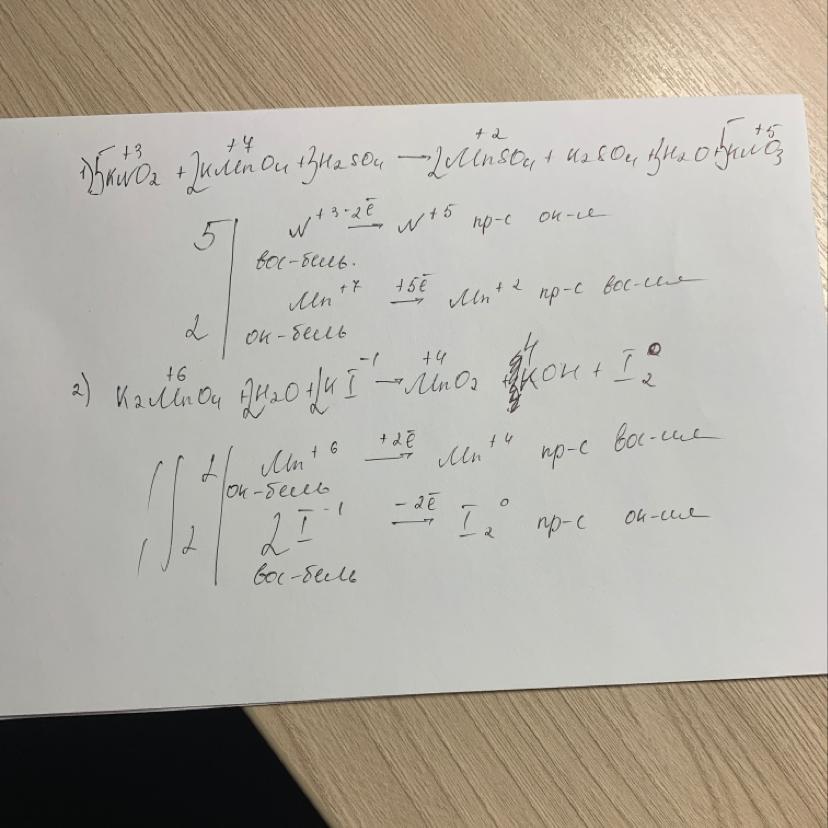 1) 5KNO2 + 2KMnO4 + 3H2SO4 → 2MnSO4 + K2SO4 + 3H2O + 5KNO3
+3 +7 +2 +5
5 | N+3 -2ē → N+5 пр-с ок-ие
вос-тель.
2 | Mn+7 +5ē → Mn+2 пр-с вос-ние
ок-тель
2) K2MnO4 + 2H2O + 2KI → MnO2 + 4KOH + I2
+6 -1 +4 0
1 2 | Mn+6 +2ē → Mn+4 пр-с вос-ние
ок-тель
1 2 | 2I-1 -2ē → I2 0 пр-с ок-ние
вос-тель